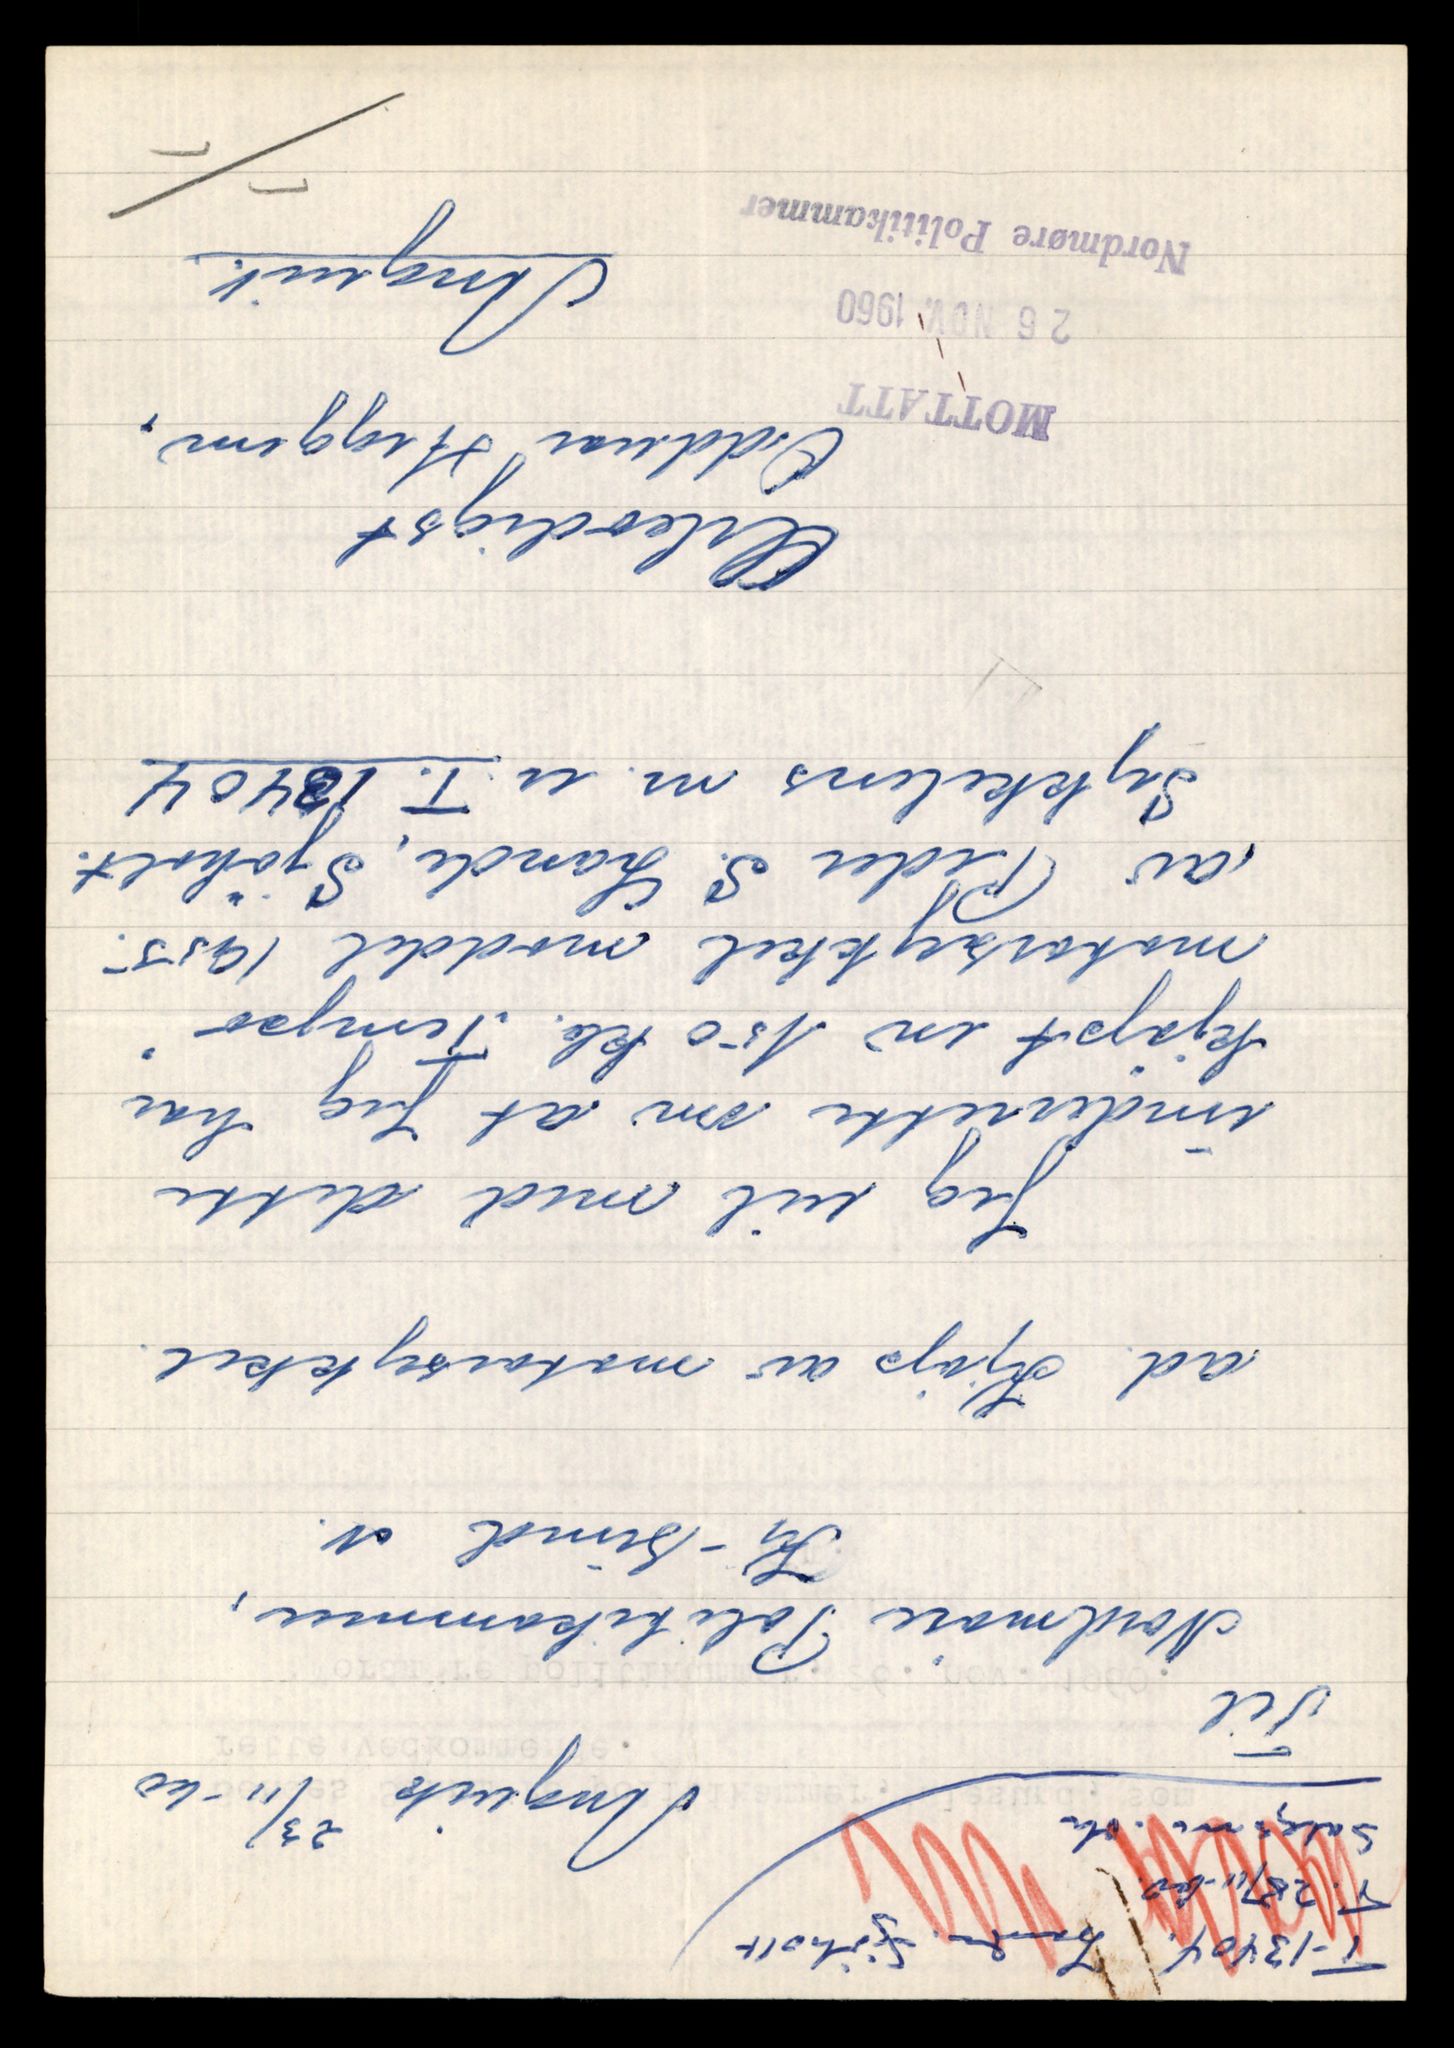 T-13404. Lande. Sjöholt
T. 28/11-60.
Salgsm. 
Angvik 23/11-60
Til
Nordmöre Politikammer,
Kr-Sund N.
ad. Kjöp av motorsykkel.
Jeg vil med dette
underrette om at Jeg har
kjöpt en 150 kb. Tempo
motorsykkel moddel 1955.
av Peder S. Lande, Sjöholt.
Sykkelens m. u T. 13404
Erbødigst
Oddvar Heggem,
Angvik.
MOTTATT
26 NOV. 1960
Nordmøre Politikammer